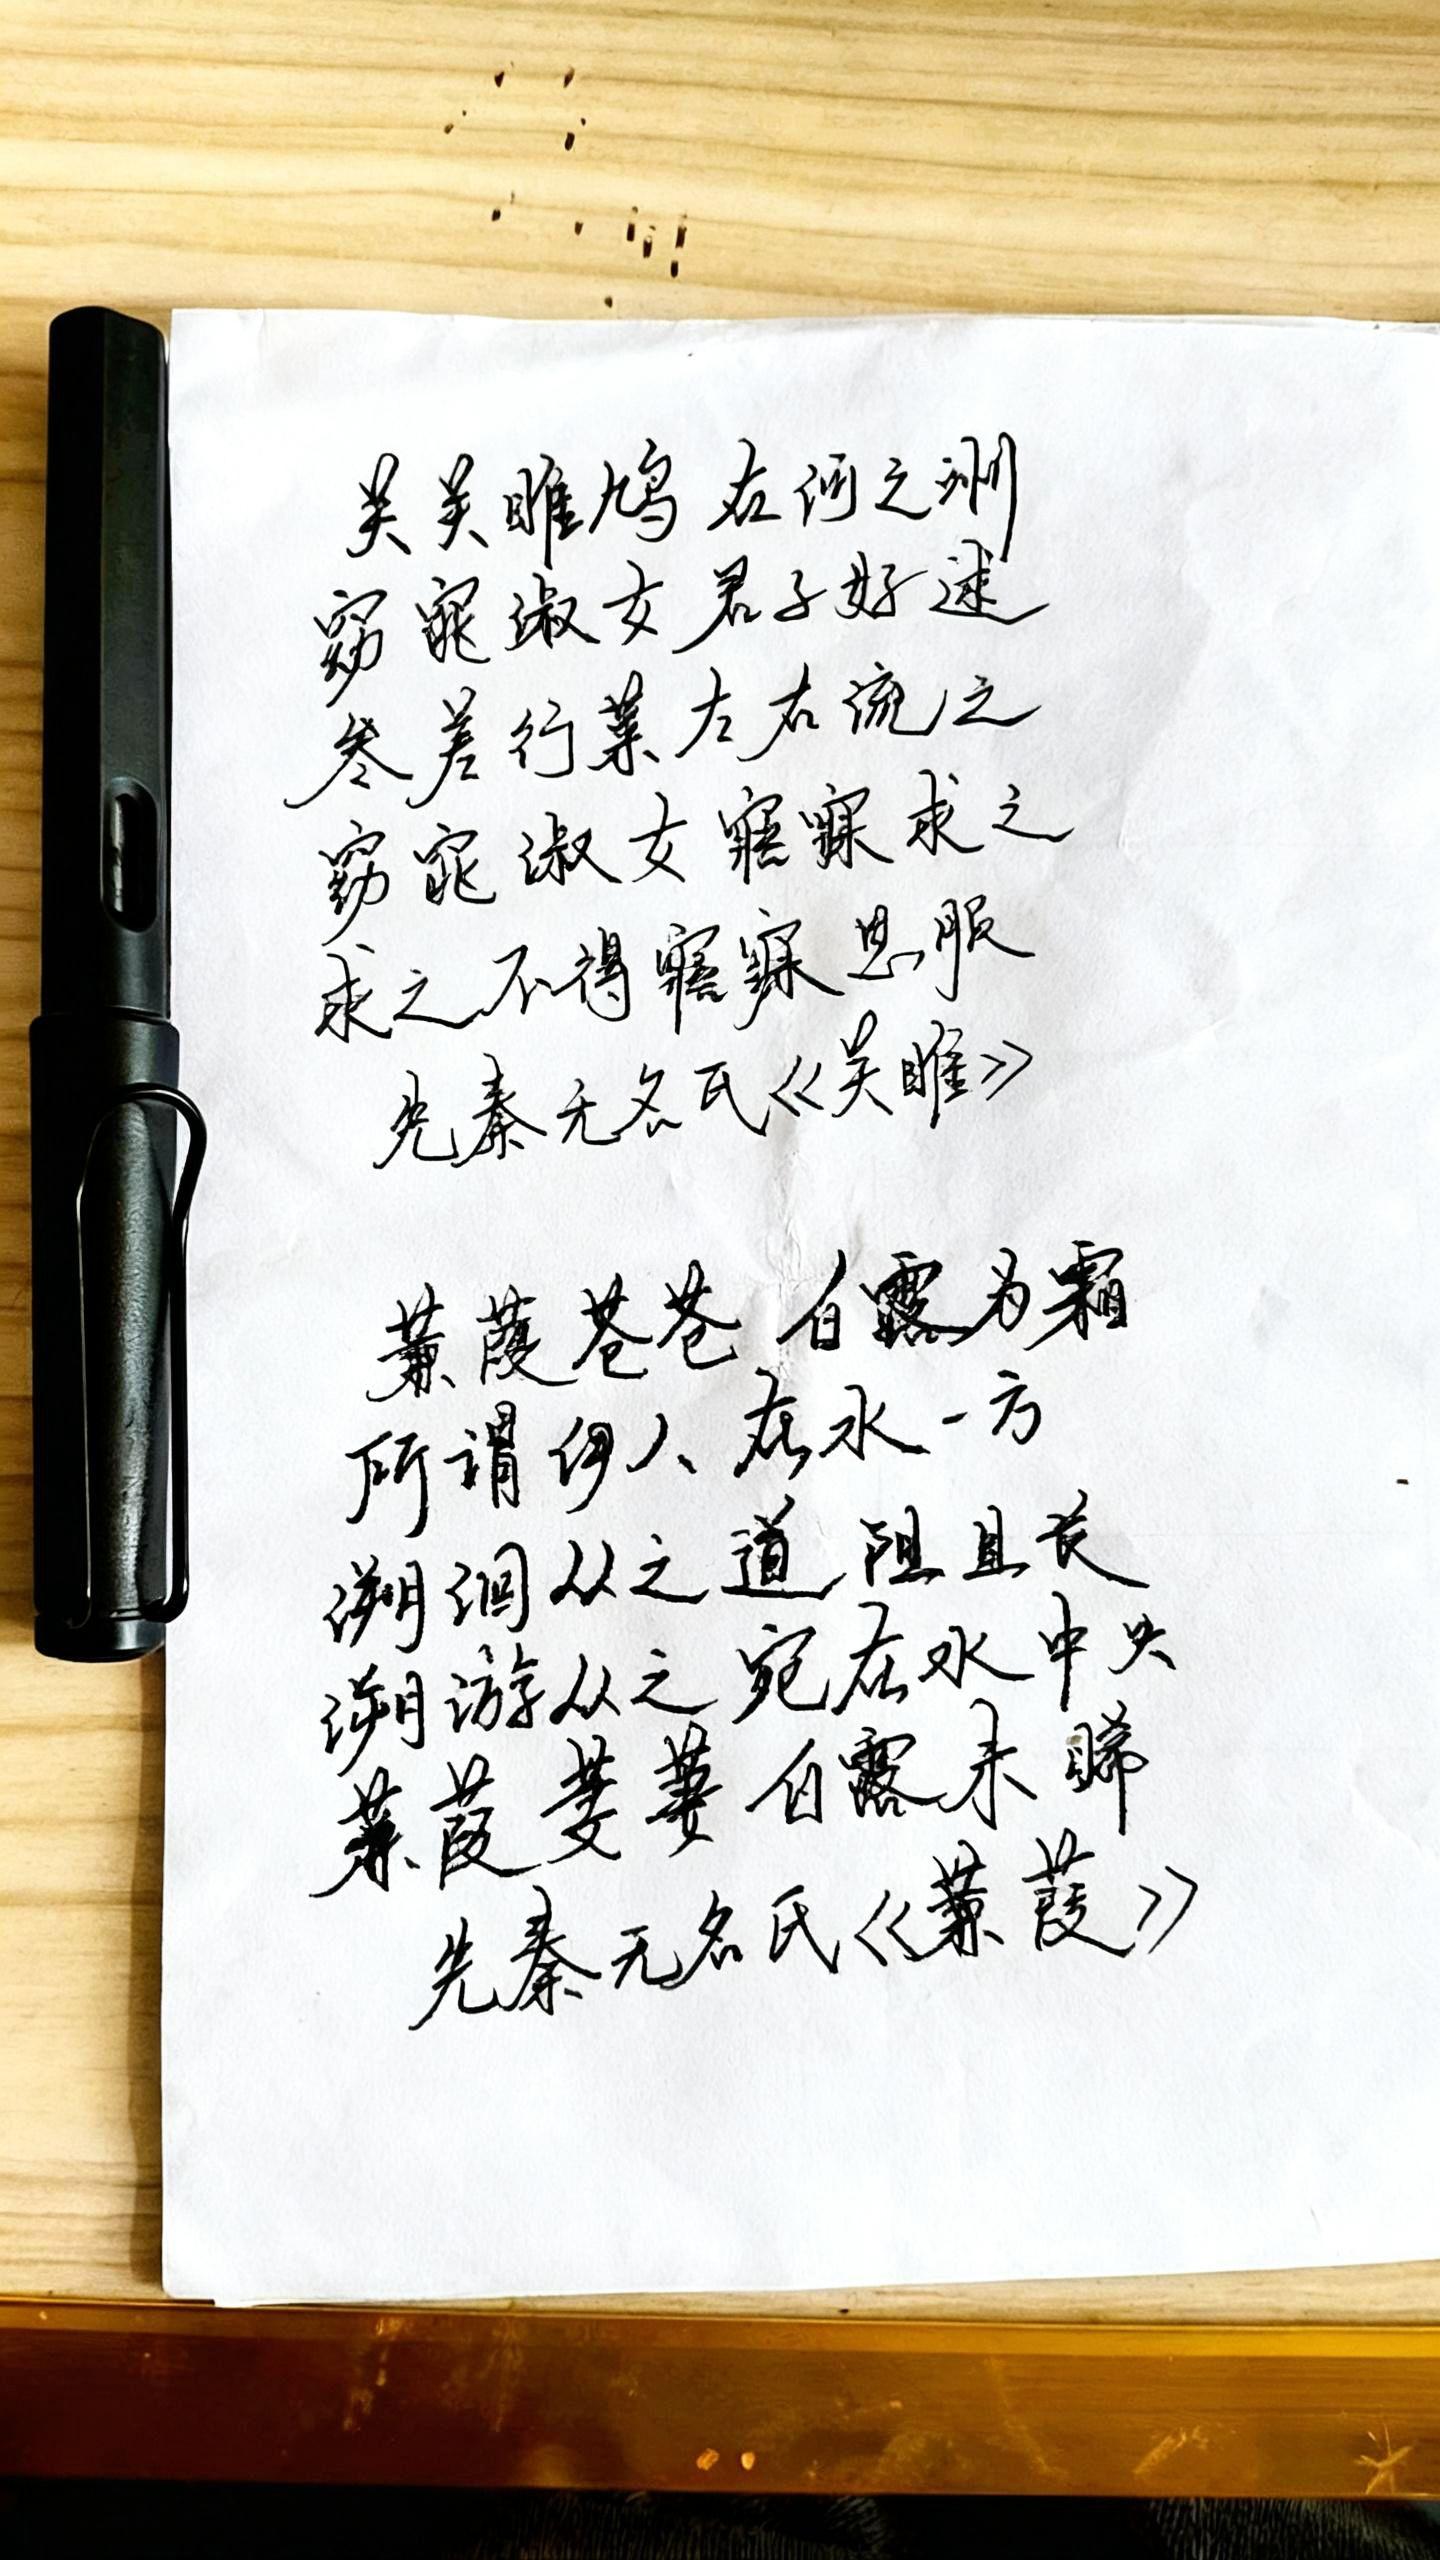 关关雎鸠 在河之洲
窈窕淑女 君子好逑
参差行菜 左右流之
窈窕淑女 寤寐求之
求之不得 寤寐思服
先秦无名氏《关雎》
蒹葭苍苍 白露为霜
所谓伊人 在水一方
溯洄从之 道阻且长
溯游从之 宛在水中央
蒹葭萋萋 白露未晞
先秦无名氏《蒹葭》